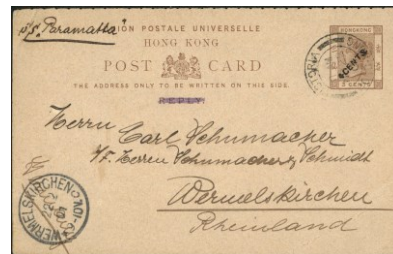 p. s.s. "Paramatta"
UNION POSTALE UNIVERSELLE
HONG KONG
POST CARD
THE ADDRESS ONLY TO BE WRITTEN ON THIS SIDE.
REPLY.
HONGKONG
VICTORIA
CENTS
Herrn
Carl Schumacher
Herren Schumacher & Schmidt
Wermelskirchen
Rheinland
WERMELSKIRCHEN